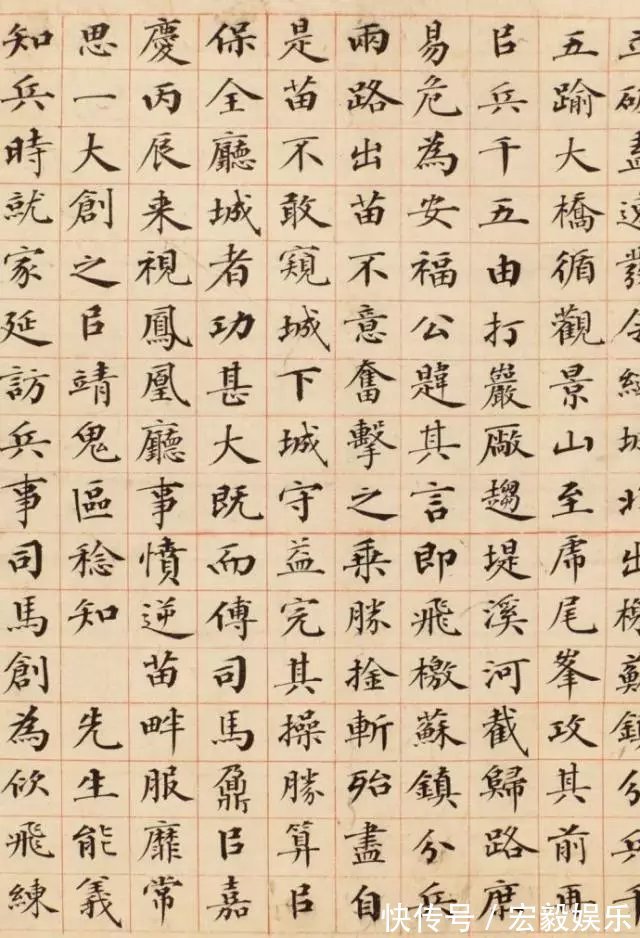 盡令出鎮分兵
五踰大橋循觀景山至虎尾峯攻其前再
㠯兵千五由打巖厰趨堤溪河截歸路席
易危為安福公韙其言即飛檄蘇鎮分兵
兩路出苗不意奮擊之乗勝掩斬殆盡自
是苗不敢窺城下城守益完其操勝算㠯
保全廳城者功甚大既而傅司馬鼐㠯嘉
慶丙辰来視鳳凰廳事憤逆苗畔服靡常
思一大創之㠯靖鬼區稔知 先生能義
知兵時就家延訪兵事司馬創為佽飛練
快传号 / 宏毅娱乐